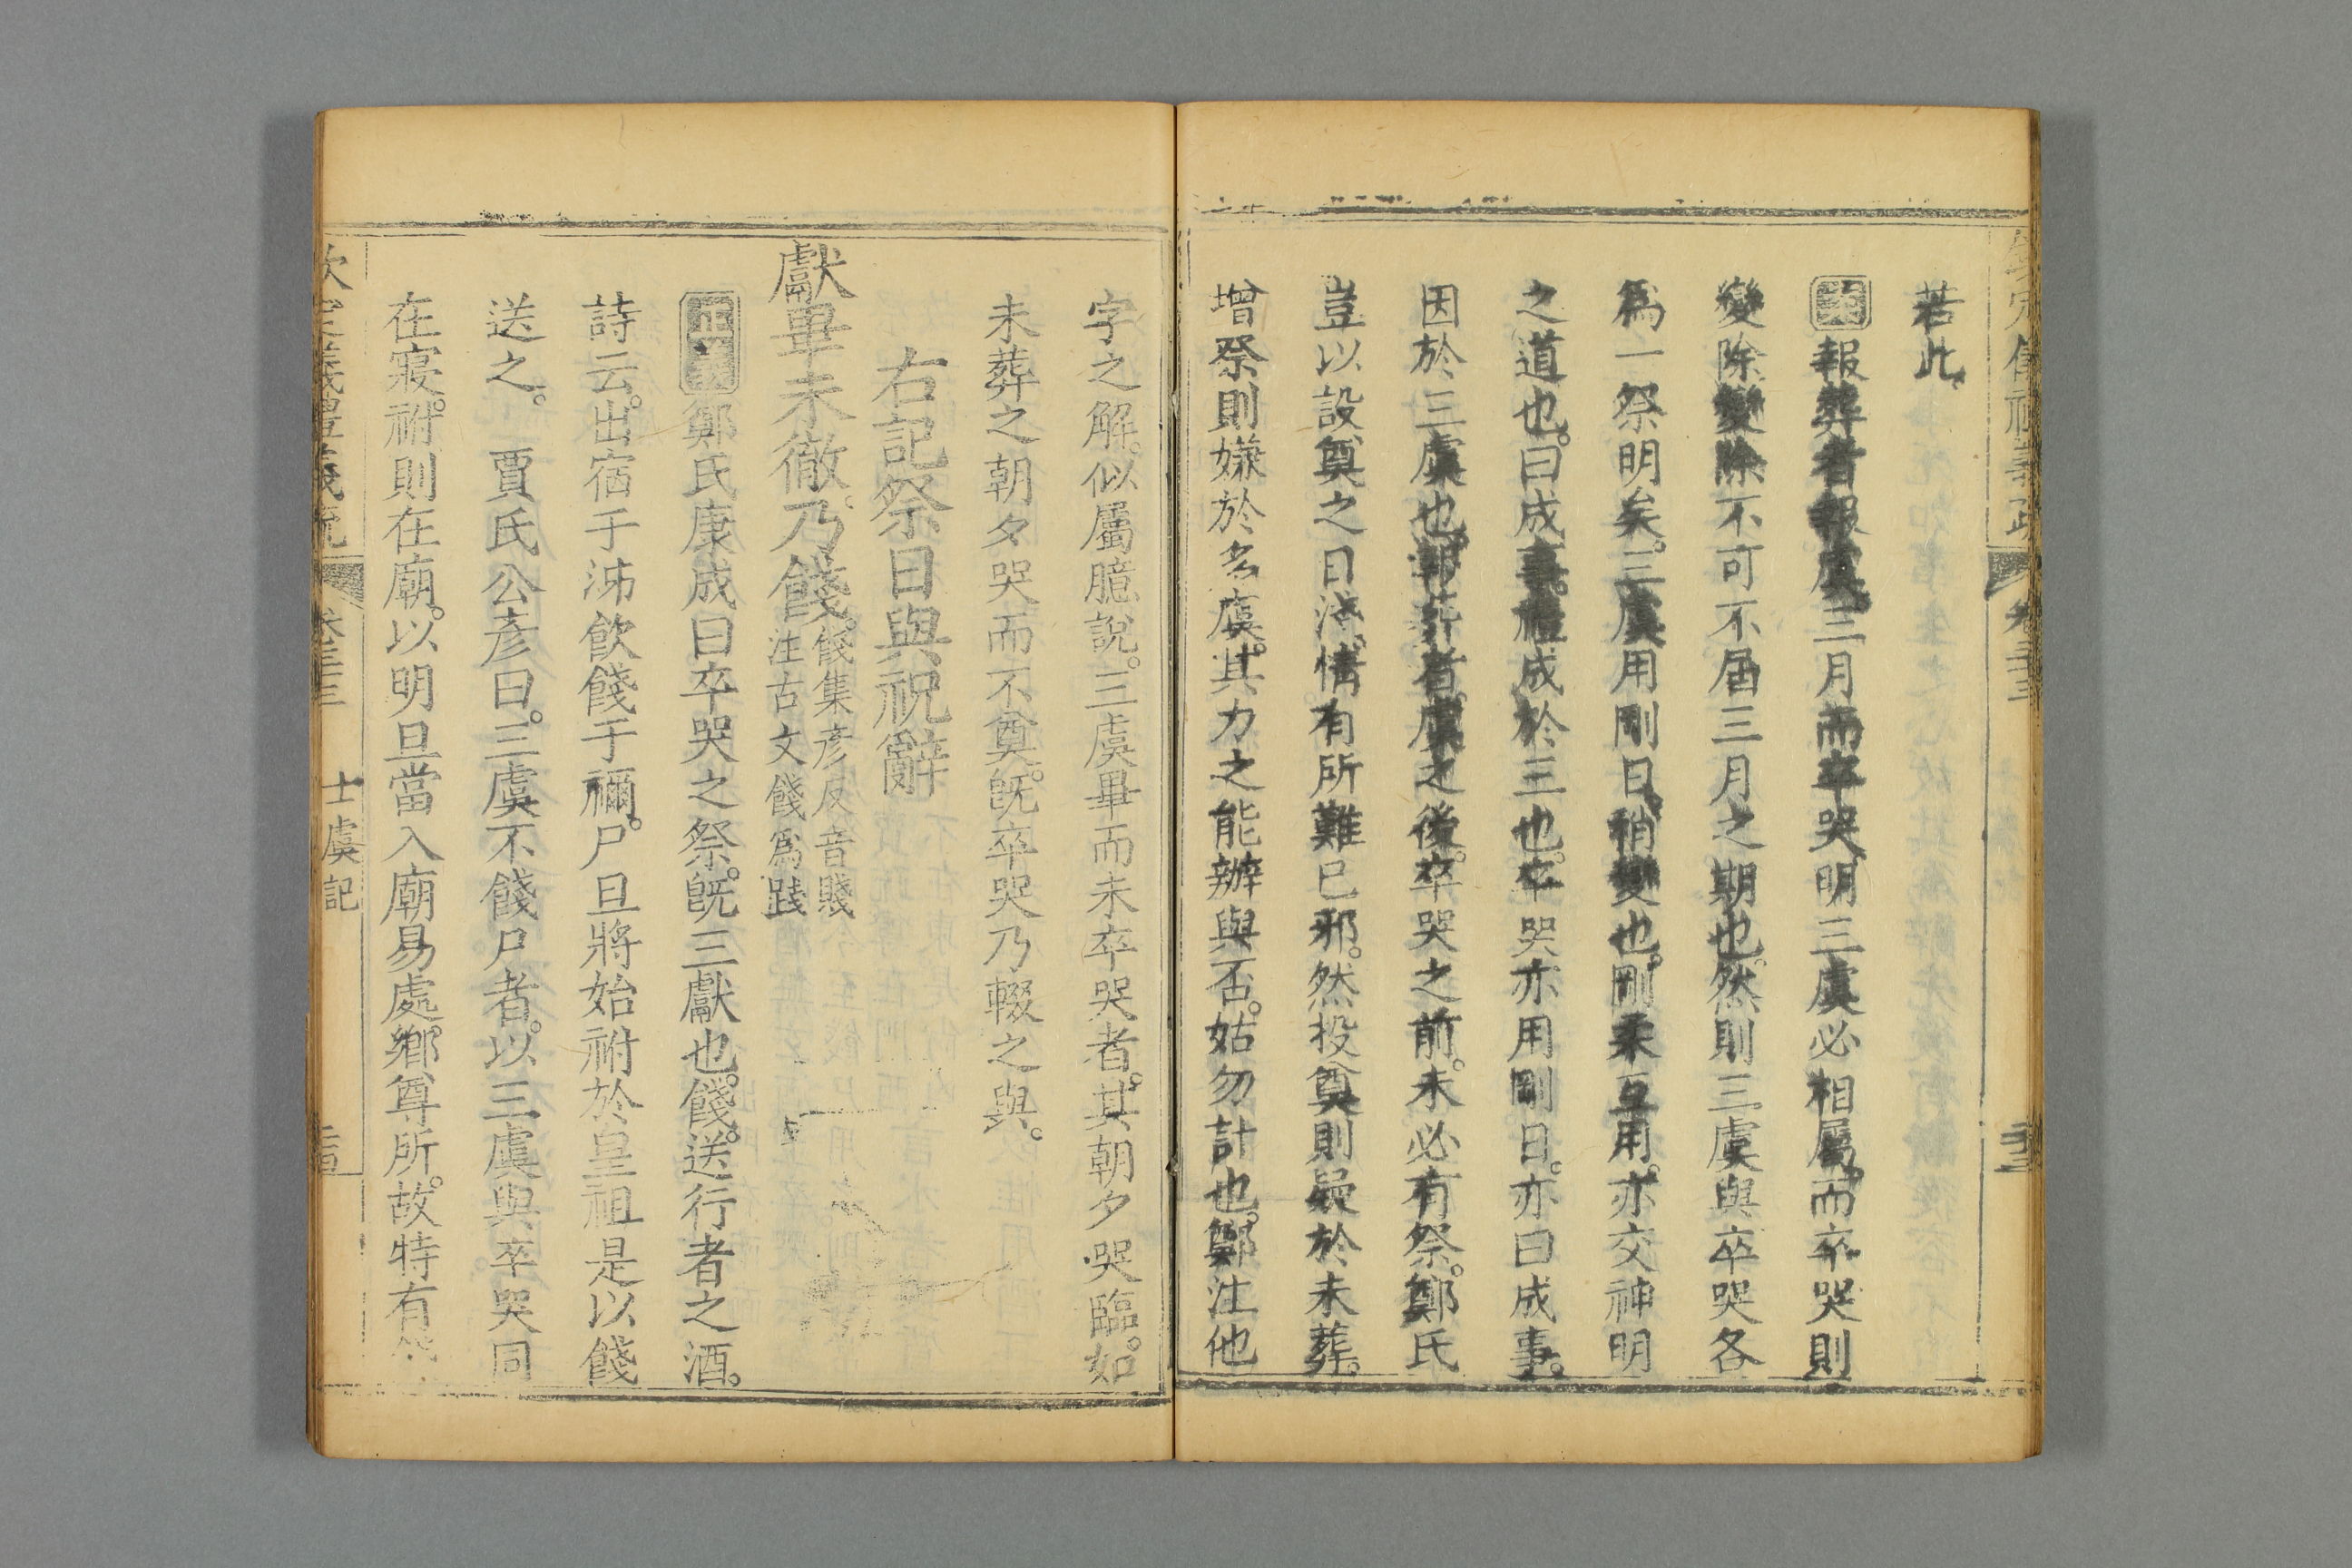 若此
案報葬者報虞三月而卒哭明三虞必相屬而卒哭則
變除變除不可不届三月之期也然則三虞與卒哭各
爲一祭明矣三虞用剛日稍變也剛柔互用亦交神明
之道也曰成事禮成於三也卒哭亦用剛日亦曰成事
因於三虞也報葬者虞之後卒哭之前未必有祭鄭氏
豈以設奠之日淺情有所難已邪然投奠則疑於未葬
增祭則嫌於多虞其力之能辦與否姑勿計也鄭注他
字之解似屬臆說三虞畢而未卒哭者其朝夕哭臨如
未葬之朝夕哭而不奠旣卒哭乃輟之與
右記祭日與祝辭
獻畢未徹乃餞
餞集彥反音賤
注古文餞爲踐
正義鄭氏康成曰卒哭之祭旣三獻也餞送行者之酒
詩云出宿于泲飲餞于禰尸旦將始祔於皇祖是以餞
送之 賈氏公彥曰三虞不餞尸者以三虞與卒哭同
在寢祔則在廟以明旦當入廟易處鄉尊所故特有
欽定儀禮義疏 卷三十三 士虞記